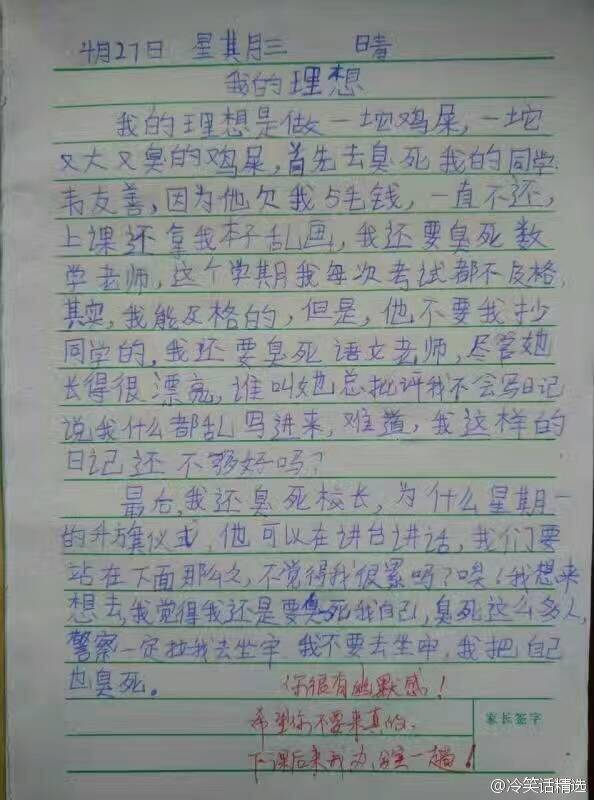 4月27日 星其月三 晴
我的理想
我的理想是做一坨鸡屎,一坨
又大又臭的鸡屎,首先去臭死我的同学
韦友善,因为他欠我5毛钱,一直不还,
上课还拿我本子乱画,我还要臭死数
学老师,这个学期我每次考试都不及格,
其实,我能及格的,但是,他不要我抄
同学的,我还要臭死语文老师,尽管她
长得很漂亮,谁叫她总批评我不会写日记
说我什么都乱写进来,难道,我这样的
日记还不够好吗?
最后,我还臭死校长,为什么星期一
的升旗仪式,他可以在讲台讲话,我们要
站在下面那么久,不觉得我很累吗?唉!我想来
想去,我觉得我还是要臭死我自己,臭死这么多人,
警察一定拉我去坐牢,我不要去坐牢,我把自己
也臭死。
你很有幽默感!
希望你不要来真的.
下课后来我办公室一趟!
家长签字
@冷笑话精选